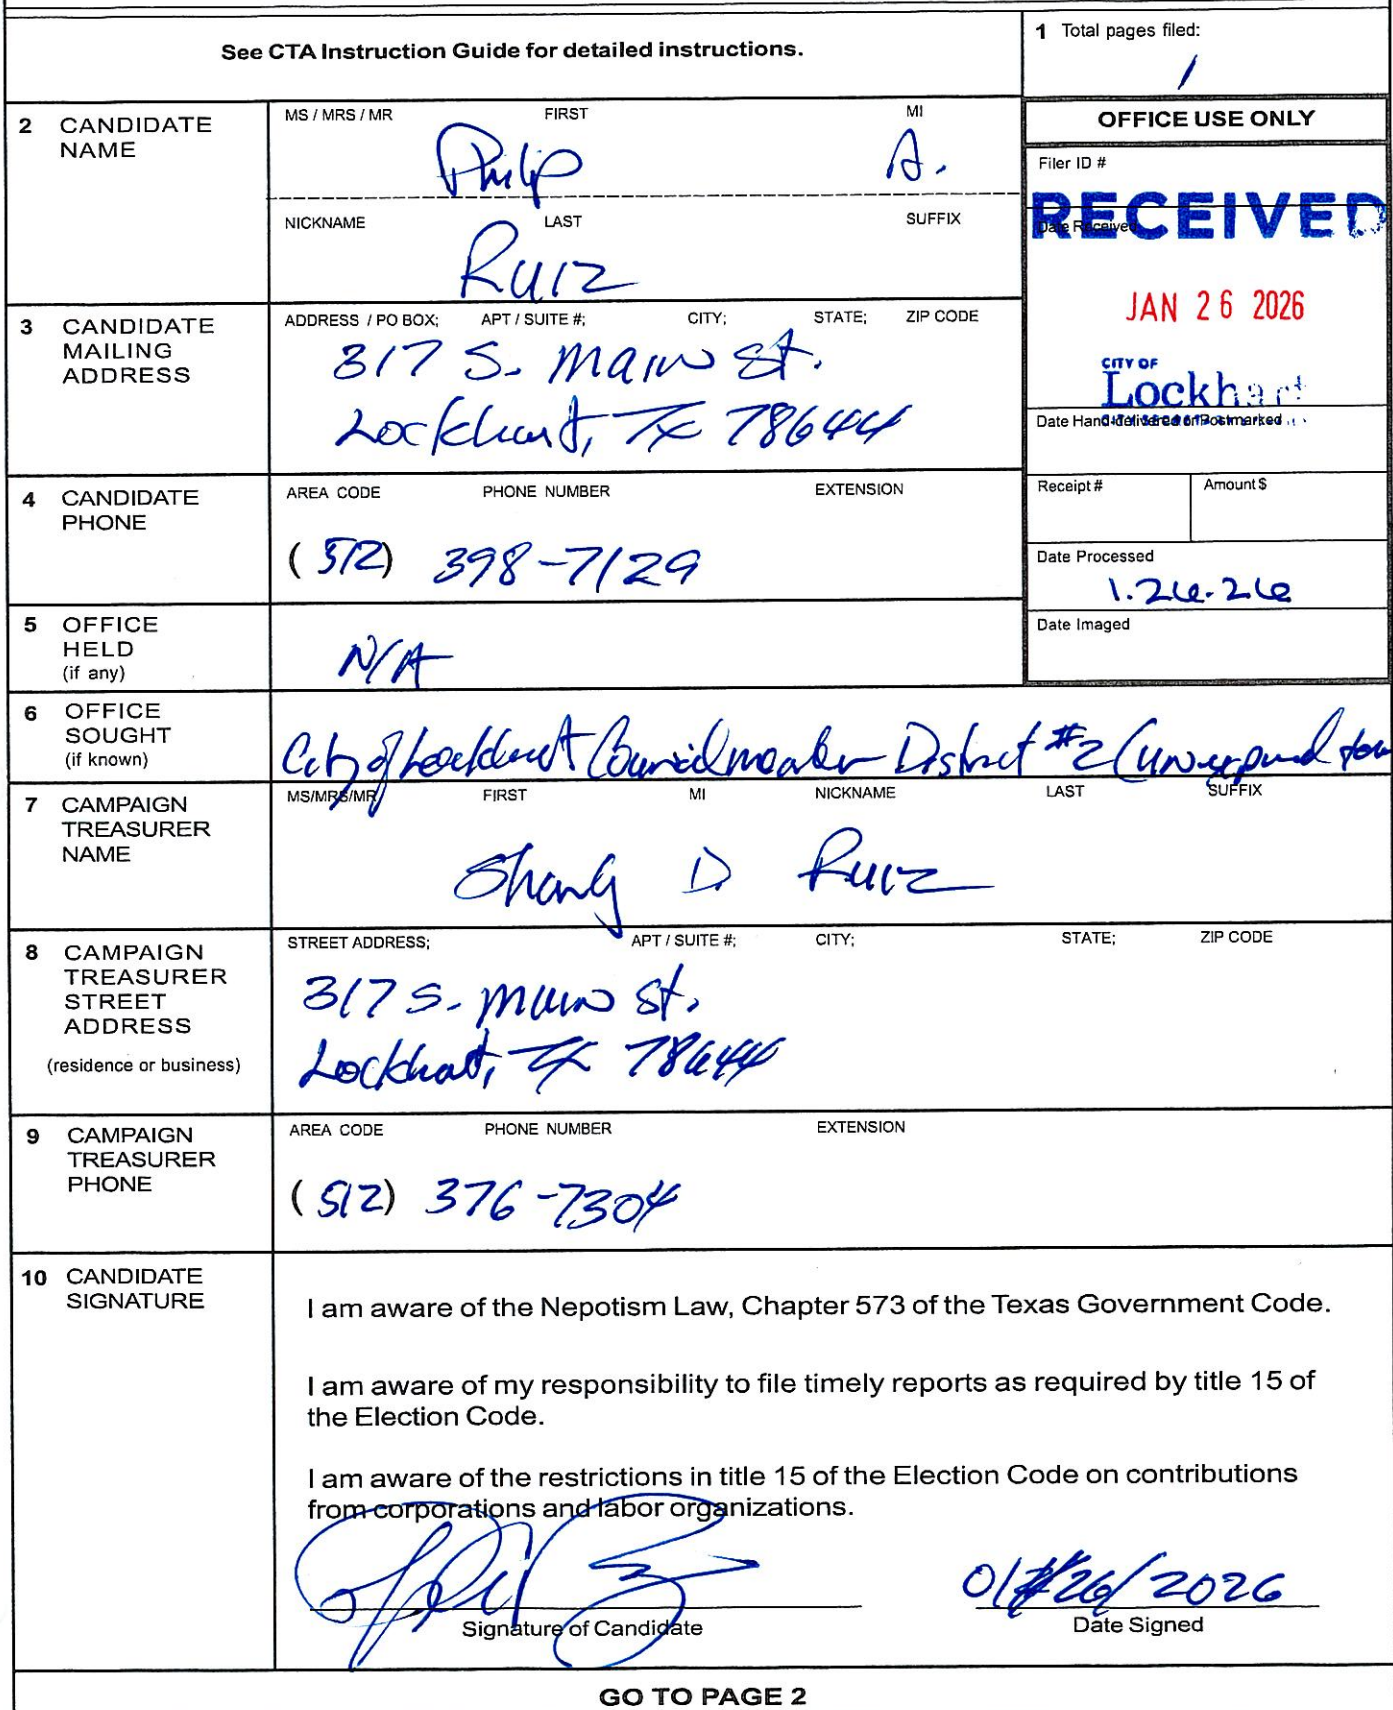 See CTA Instruction Guide for detailed instructions.
1 Total pages filed:
1
2 CANDIDATE NAME
MS / MRS / MR FIRST MI
Philip A.
NICKNAME LAST SUFFIX
Ruiz
OFFICE USE ONLY
Filer ID #
RECEIVED
Date Received
JAN 26 2026
CITY OF
Lockhart
Date Hand-delivered or Postmarked
Receipt # Amount $
Date Processed
1.26.26
Date Imaged
3 CANDIDATE MAILING ADDRESS
ADDRESS / PO BOX; APT / SUITE #; CITY; STATE; ZIP CODE
317 S. Main St.
Lockhart, TX 78644
4 CANDIDATE PHONE
AREA CODE PHONE NUMBER EXTENSION
(512) 398-7129
5 OFFICE HELD (if any)
N/A
6 OFFICE SOUGHT (if known)
City of Lockhart Councilmember District #2 (Unexpired
7 CAMPAIGN TREASURER NAME
MS/MRS/MR FIRST MI NICKNAME LAST SUFFIX
D Ruiz
8 CAMPAIGN TREASURER STREET ADDRESS (residence or business)
STREET ADDRESS; APT / SUITE #; CITY; STATE; ZIP CODE
317 S. Main St.
Lockhart, TX 78644
9 CAMPAIGN TREASURER PHONE
AREA CODE PHONE NUMBER EXTENSION
(512) 376-7304
10 CANDIDATE SIGNATURE
I am aware of the Nepotism Law, Chapter 573 of the Texas Government Code.
I am aware of my responsibility to file timely reports as required by title 15 of
the Election Code.
I am aware of the restrictions in title 15 of the Election Code on contributions
from corporations and labor organizations.
01/26/2026
Signature of Candidate Date Signed
GO TO PAGE 2